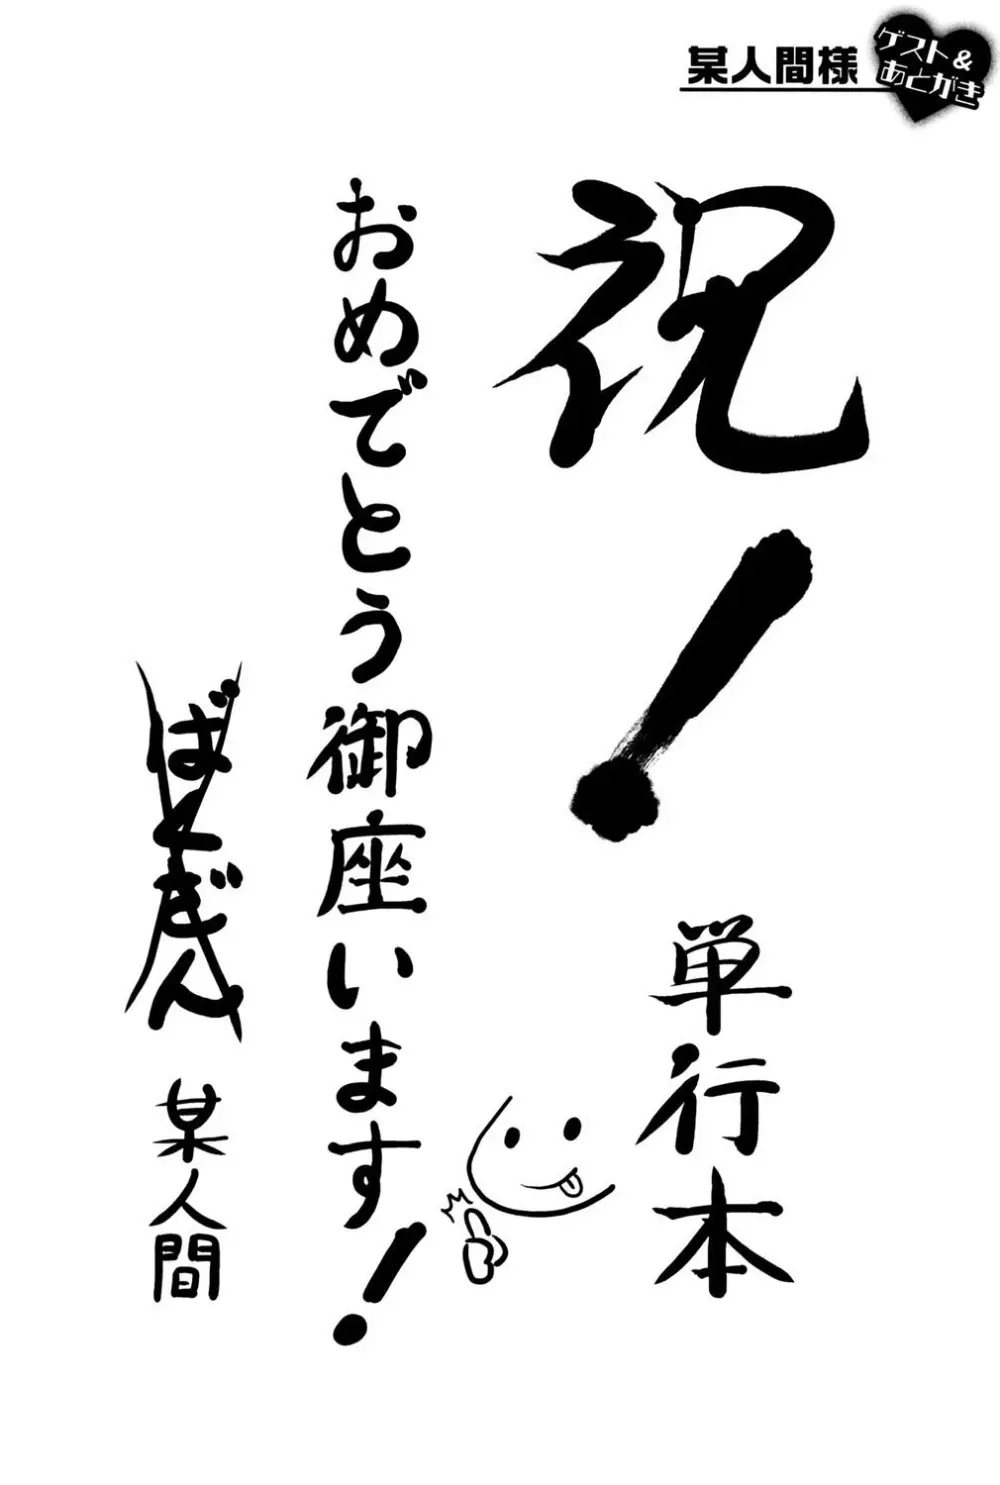 某人間様
ゲスト&
あとがき
祝！
単行本
おめでとう御座います！
ばくぎん
某人間